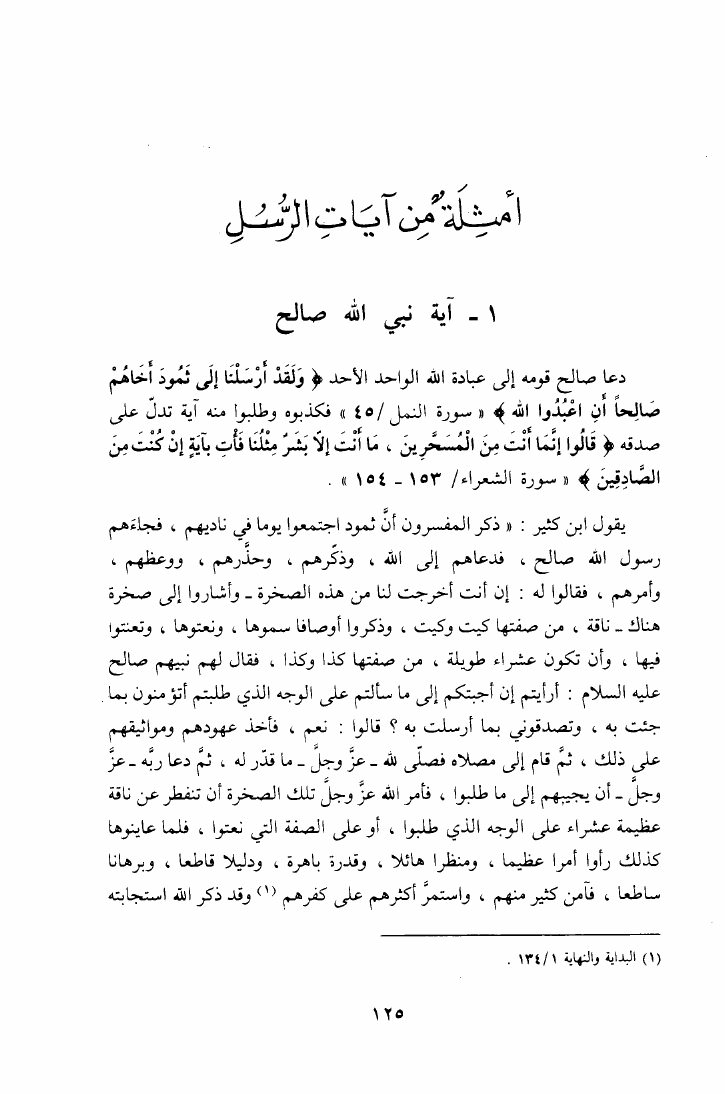 أمثِلَةٌ مِن آيَاتِ الرُّسُلِ
١ - آية نبي الله صالح
دعا صالح قومه إلى عبادة الله الواحد الأحد ﴿ وَلَقَدْ أَرْسَلْنَا إِلَى ثَمُودَ أَخَاهُمْ
صَالِحاً أَنِ اعْبُدُوا الله ﴾ « سورة النمل /٤٥ » فكذبوه وطلبوا منه آية تدلّ على
صدقه ﴿ قَالُوا إِنَّمَا أَنْتَ مِنَ الْمُسَحَّرِينَ ، مَا أَنْتَ إِلاّ بَشَرٌ مِثْلُنَا فَأْتِ بآيَةٍ إنْ كُنْتَ مِنَ
الصَّادِقِينَ ﴾ « سورة الشعراء/ ١٥٣ - ١٥٤ » .
يقول ابن كثير : « ذكر المفسرون أنَّ ثمود اجتمعوا يوما في ناديهم ، فجاءهم
رسول الله صالح ، فدعاهم إلى الله ، وذكّرهم ، وحذّرهم ، ووعظهم ،
وأمرهم ، فقالوا له : إن أنت أخرجت لنا من هذه الصخرة - وأشاروا إلى صخرة
هناك - ناقة ، من صفتها كيت وكيت ، وذكروا أوصافا سموها ، ونعتوها ، وتعنتوا
فيها ، وأن تكون عشراء طويلة ، من صفتها كذا وكذا ، فقال لهم نبيهم صالح
عليه السلام : أرأيتم إن أجبتكم إلى ما سألتم على الوجه الذي طلبتم أتؤمنون بما
جئت به ، وتصدقوني بما أرسلت به ؟ قالوا : نعم ، فأخذ عهودهم ومواثيقهم
على ذلك ، ثمَّ قام إلى مصلاه فصلّى لله - عزَّ وجلَّ - ما قدّر له ، ثمَّ دعا ربَّه - عزَّ
وجلَّ - أن يجيبهم إلى ما طلبوا ، فأمر الله عزَّ وجلَّ تلك الصخرة أن تنفطر عن ناقة
عظيمة عشراء على الوجه الذي طلبوا ، أو على الصفة التي نعتوا ، فلما عاينوها
كذلك رأوا أمرا عظيما ، ومنظرا هائلا ، وقدرة باهرة ، ودليلا قاطعا ، وبرهانا
ساطعا ، فآمن كثير منهم ، واستمرَّ أكثرهم على كفرهم (١) وقد ذكر الله استجابته
(١) البداية والنهاية ١٣٤/١ .
١٢٥